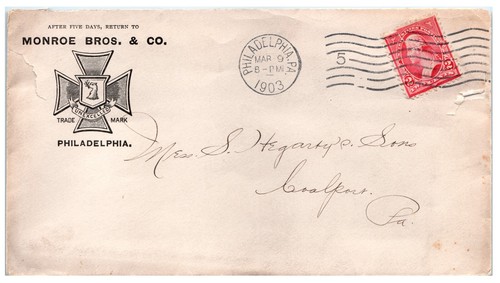 AFTER FIVE DAYS, RETURN TO
MONROE BROS. & CO.
UNEXCELLED
TRADE MARK
PHILADELPHIA.
PHILADELPHIA, PA
MAR 9
6-PM
1903
5
Mess. S. Hegarty & Sons
Coalport.
Pa.